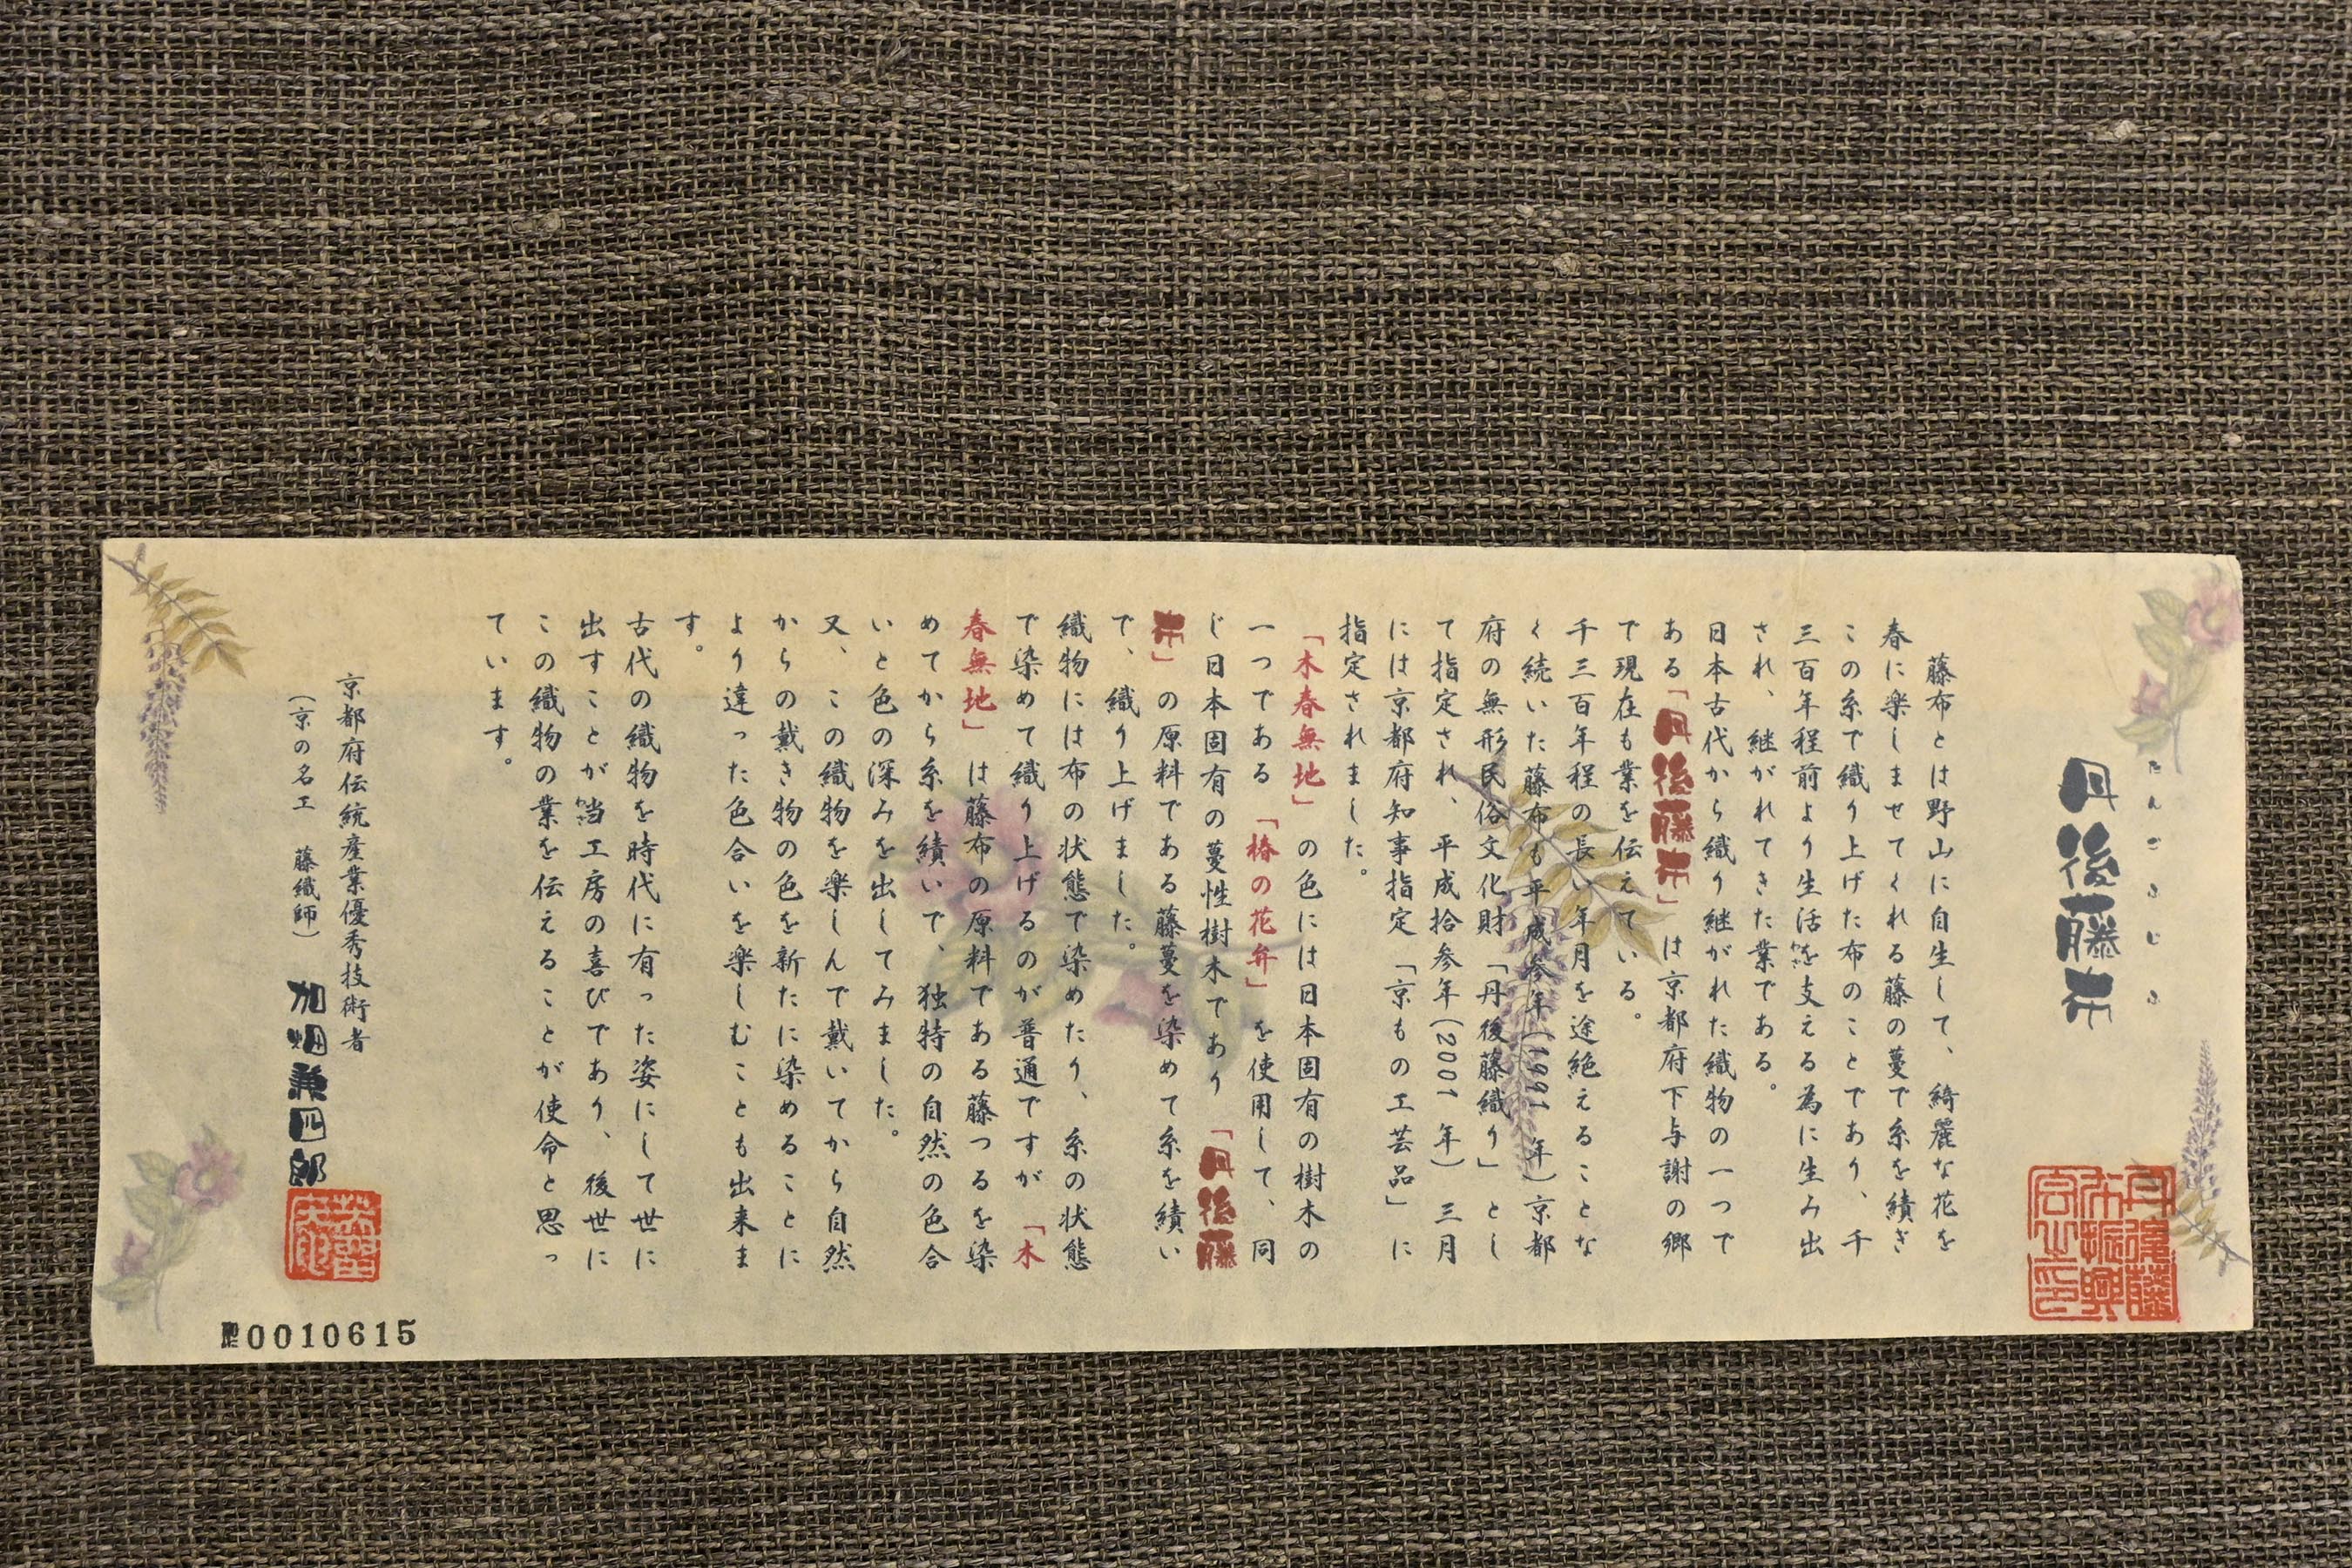 たんごふじふ
丹後藤布
丹後藤布振興会之印
藤布とは野山に自生して、綺麗な花を
春に楽しませてくれる藤の蔓で糸を績ぎ
この糸で織り上げた布のことであり、千
三百年程前より生活を支える為に生み出
され、継がれてきた業である。
日本古代から織り継がれた織物の一つで
ある「丹後藤布」は京都府下与謝の郷
で現在も業を伝えている。
千三百年程の長い年月を途絶えることな
く続いた藤布も平成参年(1991年)京都
府の無形民俗文化財「丹後藤織り」とし
て指定され、平成拾参年(2001年)三月
には京都府知事指定「京もの工芸品」に
指定されました。
「木春無地」の色には日本固有の樹木の
一つである「椿の花弁」を使用して、同
じ日本固有の蔓性樹木であり「丹後藤
布」の原料である藤蔓を染めて糸を績い
で、織り上げました。
織物には布の状態で染めたり、糸の状態
で染めて織り上げるのが普通ですが「木
春無地」は藤布の原料である藤つるを染
めてから糸を績いで、独特の自然の色合
いと色の深みを出してみました。
又、この織物を楽しんで戴いてから自然
からの戴き物の色を新たに染めることに
より違った色合いを楽しむことも出来ま
す。
古代の織物を時代に有った姿にして世に
出すことが当工房の喜びであり、後世に
この織物の業を伝えることが使命と思っ
ています。
京都府伝統産業優秀技術者
(京の名工 藤織師) 加畑兼四郎
0010615